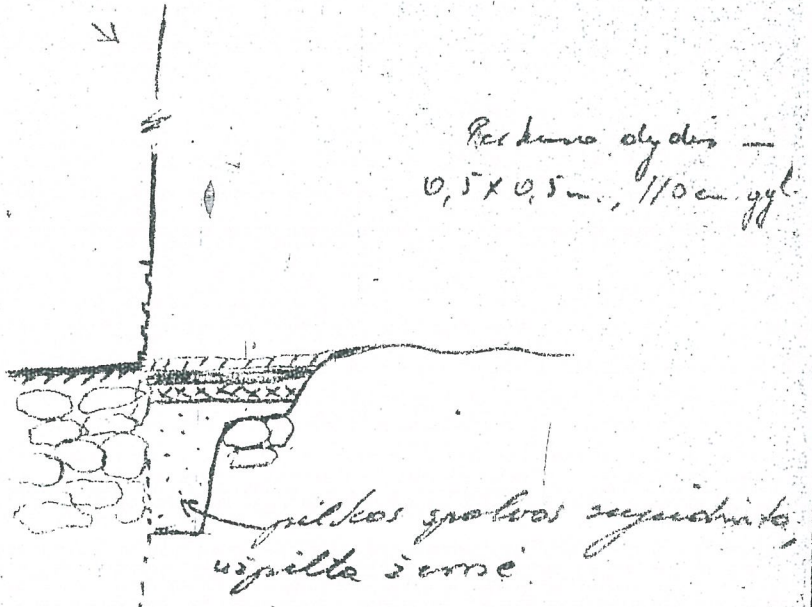 Perkaso dydis —
0,5 x 0,5 m., 110 cm gyl.
pilkos spalvos sujudinta,
užpilta žemė.